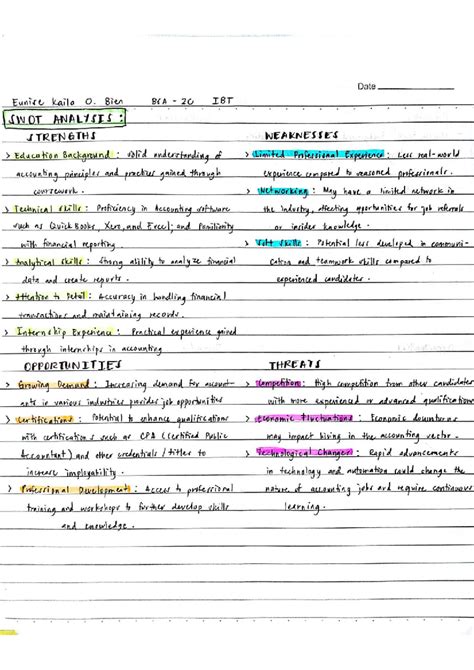 Date
Eunise Kaila O. Bien BSA - 2C IBT
SWOT ANALYSIS :
STRENGTHS
> Education Background : Solid understanding of
accounting principles and practices gained through
coursework.
> Technical Skills : Proficiency in Accounting software
such as QuickBooks, Xero, and Excel; and Familiarity
with financial reporting
> Analytical Skills : Strong ability to analyze financial
data and create reports.
> Attention to Detail : Accuracy in handling financial
transactions and maintaining records.
> Internship Experience : Practical experience gained
through internships in accounting
WEAKNESSES
> Limited Professional Experience : Less real-world
experience compared to seasoned professionals.
> Networking : May have a limited network in
the industry, affecting opportunities for job referrals
or insider knowledge.
> Soft Skills : Potential less developed in communi-
cation and teamwork skills compared to
experienced candidates.
OPPORTUNITIES
> Growing Demand : Increasing demand for account-
ants in various industries provides job opportunities
> Certifications : Potential to enhance qualifications
with certifications such as CPA (Certified Public
Accountant) and other credentials / titles to
increase employability.
> Professional Development : Access to professional
training and workshops to further develop skills
and knowledge.
THREATS
> Competition : High competition from other candidates
with more experienced or advanced qualifications
> Economic Fluctuations : Economic downturns
may impact hiring in the accounting sector.
> Technological Changes : Rapid advancements
in technology and automation could change the
nature of accounting jobs and require continuous
learning.